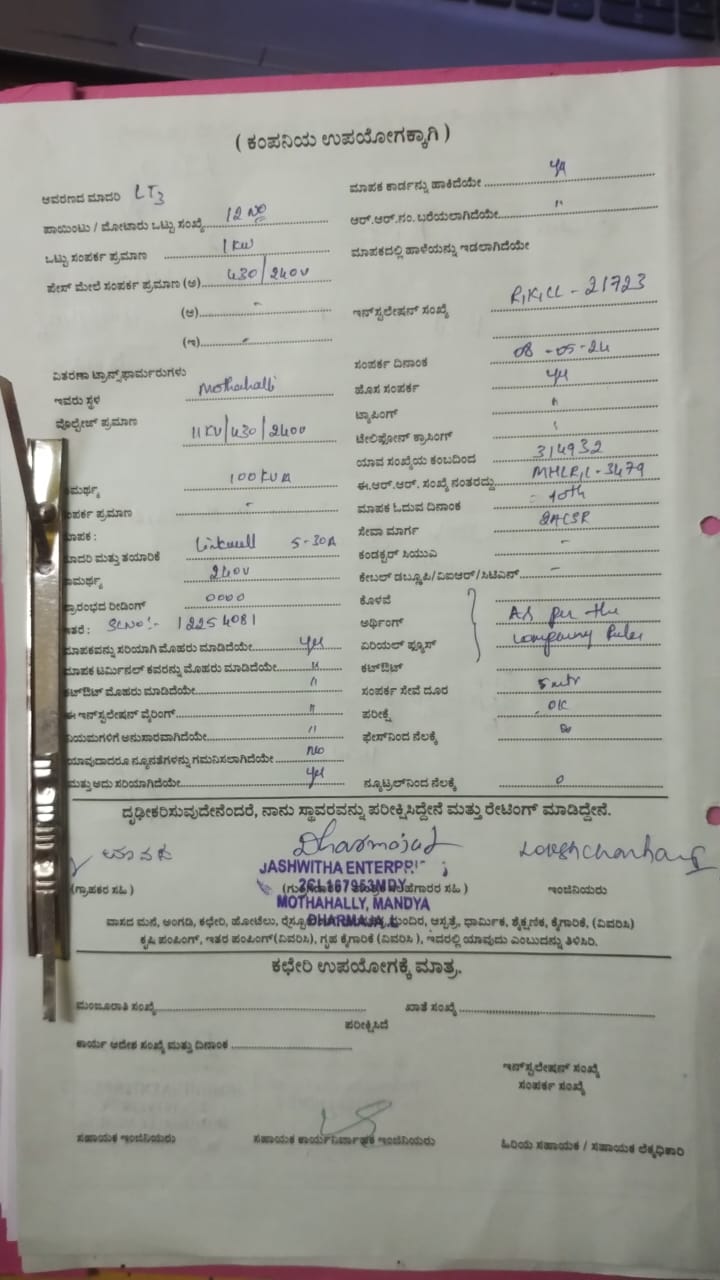 ( ಕಂಪನಿಯ ಉಪಯೋಗಕ್ಕಾಗಿ )
ಆವರಣದ ಮಾದರಿ LT3
ಪಾಯಿಂಟು / ಮೋಟಾರು ಒಟ್ಟು ಸಂಖ್ಯೆ 12 No
ಒಟ್ಟು ಸಂಪರ್ಕ ಪ್ರಮಾಣ 1 KW
ಫೇಸ್ ಮೇಲೆ ಸಂಪರ್ಕ ಪ್ರಮಾಣ (ಅ) 430/240V
(ಆ) -
(ಇ) -
ವಿತರಣಾ ಟ್ರಾನ್ಸ್‌ಫಾರ್ಮರುಗಳು
ಇವರು ಸ್ಥಳ Mothahalli
ವೋಲ್ಟೇಜ್ ಪ್ರಮಾಣ 11KV/430/240V
ಾಮರ್ಥ್ಯ 100KVA
ಂಪರ್ಕ ಪ್ರಮಾಣ -
ಮಾಪಕ : Linkwell 5-30A
ಮಾದರಿ ಮತ್ತು ತಯಾರಿಕೆ
ಾಮರ್ಥ್ಯ 240V
ಪ್ರಾರಂಭದ ರೀಡಿಂಗ್ 0000
ಇತರೆ : SLNo:- 12254081
ಮಾಪಕವನ್ನು ಸರಿಯಾಗಿ ಮೊಹರು ಮಾಡಿದೆಯೇ yes
ಮಾಪಕ ಟರ್ಮಿನಲ್ ಕವರನ್ನು ಮೊಹರು ಮಾಡಿದೆಯೇ "
ಕಟ್‌ಔಟ್ ಮೊಹರು ಮಾಡಿದೆಯೇ "
ಈ ಇನ್‌ಸ್ಟಲೇಷನ್ ವೈರಿಂಗ್ "
ನಿಯಮಗಳಿಗೆ ಅನುಸಾರವಾಗಿದೆಯೇ "
ಯಾವುದಾದರೂ ನ್ಯೂನತೆಗಳನ್ನು ಗಮನಿಸಲಾಗಿದೆಯೇ no
ಮತ್ತು ಅದು ಸರಿಯಾಗಿದೆಯೇ yes
ಮಾಪಕ ಕಾರ್ಡನ್ನು ಹಾಕಿದೆಯೇ yes
ಆರ್.ಆರ್.ನಂ. ಬರೆಯಲಾಗಿದೆಯೇ "
ಮಾಪಕದಲ್ಲಿ ಹಾಳೆಯನ್ನು ಇಡಲಾಗಿದೆಯೇ
ಇನ್‌ಸ್ಟಲೇಷನ್ ಸಂಖ್ಯೆ - 21723
ಸಂಪರ್ಕ ದಿನಾಂಕ 08-05-24
ಹೊಸ ಸಂಪರ್ಕ yes
ಟ್ಯಾಪಿಂಗ್ "
ಟೆಲಿಫೋನ್ ಕ್ರಾಸಿಂಗ್
ಯಾವ ಸಂಖ್ಯೆಯ ಕಂಬದಿಂದ 314932
ಈ.ಆರ್.ಆರ್. ಸಂಖ್ಯೆ ನಂತರದ್ದು - 3479
ಮಾಪಕ ಓದುವ ದಿನಾಂಕ 10th
ಸೇವಾ ಮಾರ್ಗ 2ACSR
ಕಂಡಕ್ಟರ್ ಸಿಯುಎ -
ಕೇಬಲ್ ಡಬ್ಲೂಪಿ/ವಿಐಆರ್/ಸಿಟಿಎಸ್ -
ಕೊಳವೆ
ಅರ್ಥಿಂಗ್ As per the
ಏರಿಯಲ್ ಫ್ಯೂಸ್ Company Rules
ಕಟ್‌ಔಟ್
ಸಂಪರ್ಕ ಸೇವೆ ದೂರ 5 mtr
ಪರೀಕ್ಷೆ OK
ಫೇಸ್‌ನಿಂದ ನೆಲಕ್ಕೆ
ನ್ಯೂಟ್ರಲ್‌ನಿಂದ ನೆಲಕ್ಕೆ 0
ದೃಢೀಕರಿಸುವುದೇನೆಂದರೆ, ನಾನು ಸ್ಥಾವರವನ್ನು ಪರೀಕ್ಷಿಸಿದ್ದೇನೆ ಮತ್ತು ರೇಟಿಂಗ್ ಮಾಡಿದ್ದೇನೆ.
Dharmajad
JASHWITHA ENTERPRI
MOTHAHALLY, MANDYA
(ಗ್ರಾಹಕರ ಸಹಿ ) ಸಹಿ ) ಇಂಜಿನಿಯರು
ವಾಸದ ಮನೆ, ಅಂಗಡಿ, ಕಛೇರಿ, ಹೋಟೆಲು, ಆಸ್ಪತ್ರೆ, ಧಾರ್ಮಿಕ, ಶೈಕ್ಷಣಿಕ, ಕೈಗಾರಿಕೆ, (ವಿವರಿಸಿ)
ಕೃಷಿ ಪಂಪಿಂಗ್, ಇತರ ಪಂಪಿಂಗ್(ವಿವರಿಸಿ), ಗೃಹ ಕೈಗಾರಿಕೆ (ವಿವರಿಸಿ ), ಇದರಲ್ಲಿ ಯಾವುದು ಎಂಬುದನ್ನು ತಿಳಿಸಿರಿ.
ಕಛೇರಿ ಉಪಯೋಗಕ್ಕೆ ಮಾತ್ರ.
ಮಂಜೂರಾತಿ ಸಂಖ್ಯೆ ಖಾತೆ ಸಂಖ್ಯೆ
ಪರೀಕ್ಷಿಸಿದೆ
ಕಾರ್ಯ ಆದೇಶ ಸಂಖ್ಯೆ ಮತ್ತು ದಿನಾಂಕ
ಇನ್‌ಸ್ಟಲೇಷನ್ ಸಂಖ್ಯೆ
ಸಂಪರ್ಕ ಸಂಖ್ಯೆ
ಸಹಾಯಕ ಇಂಜಿನಿಯರು ಸಹಾಯಕ ಕಾರ್ಯನಿರ್ವಾಹಕ ಇಂಜಿನಿಯರು ಹಿರಿಯ ಸಹಾಯಕ / ಸಹಾಯಕ ಲೆಕ್ಕಧಿಕಾರಿ